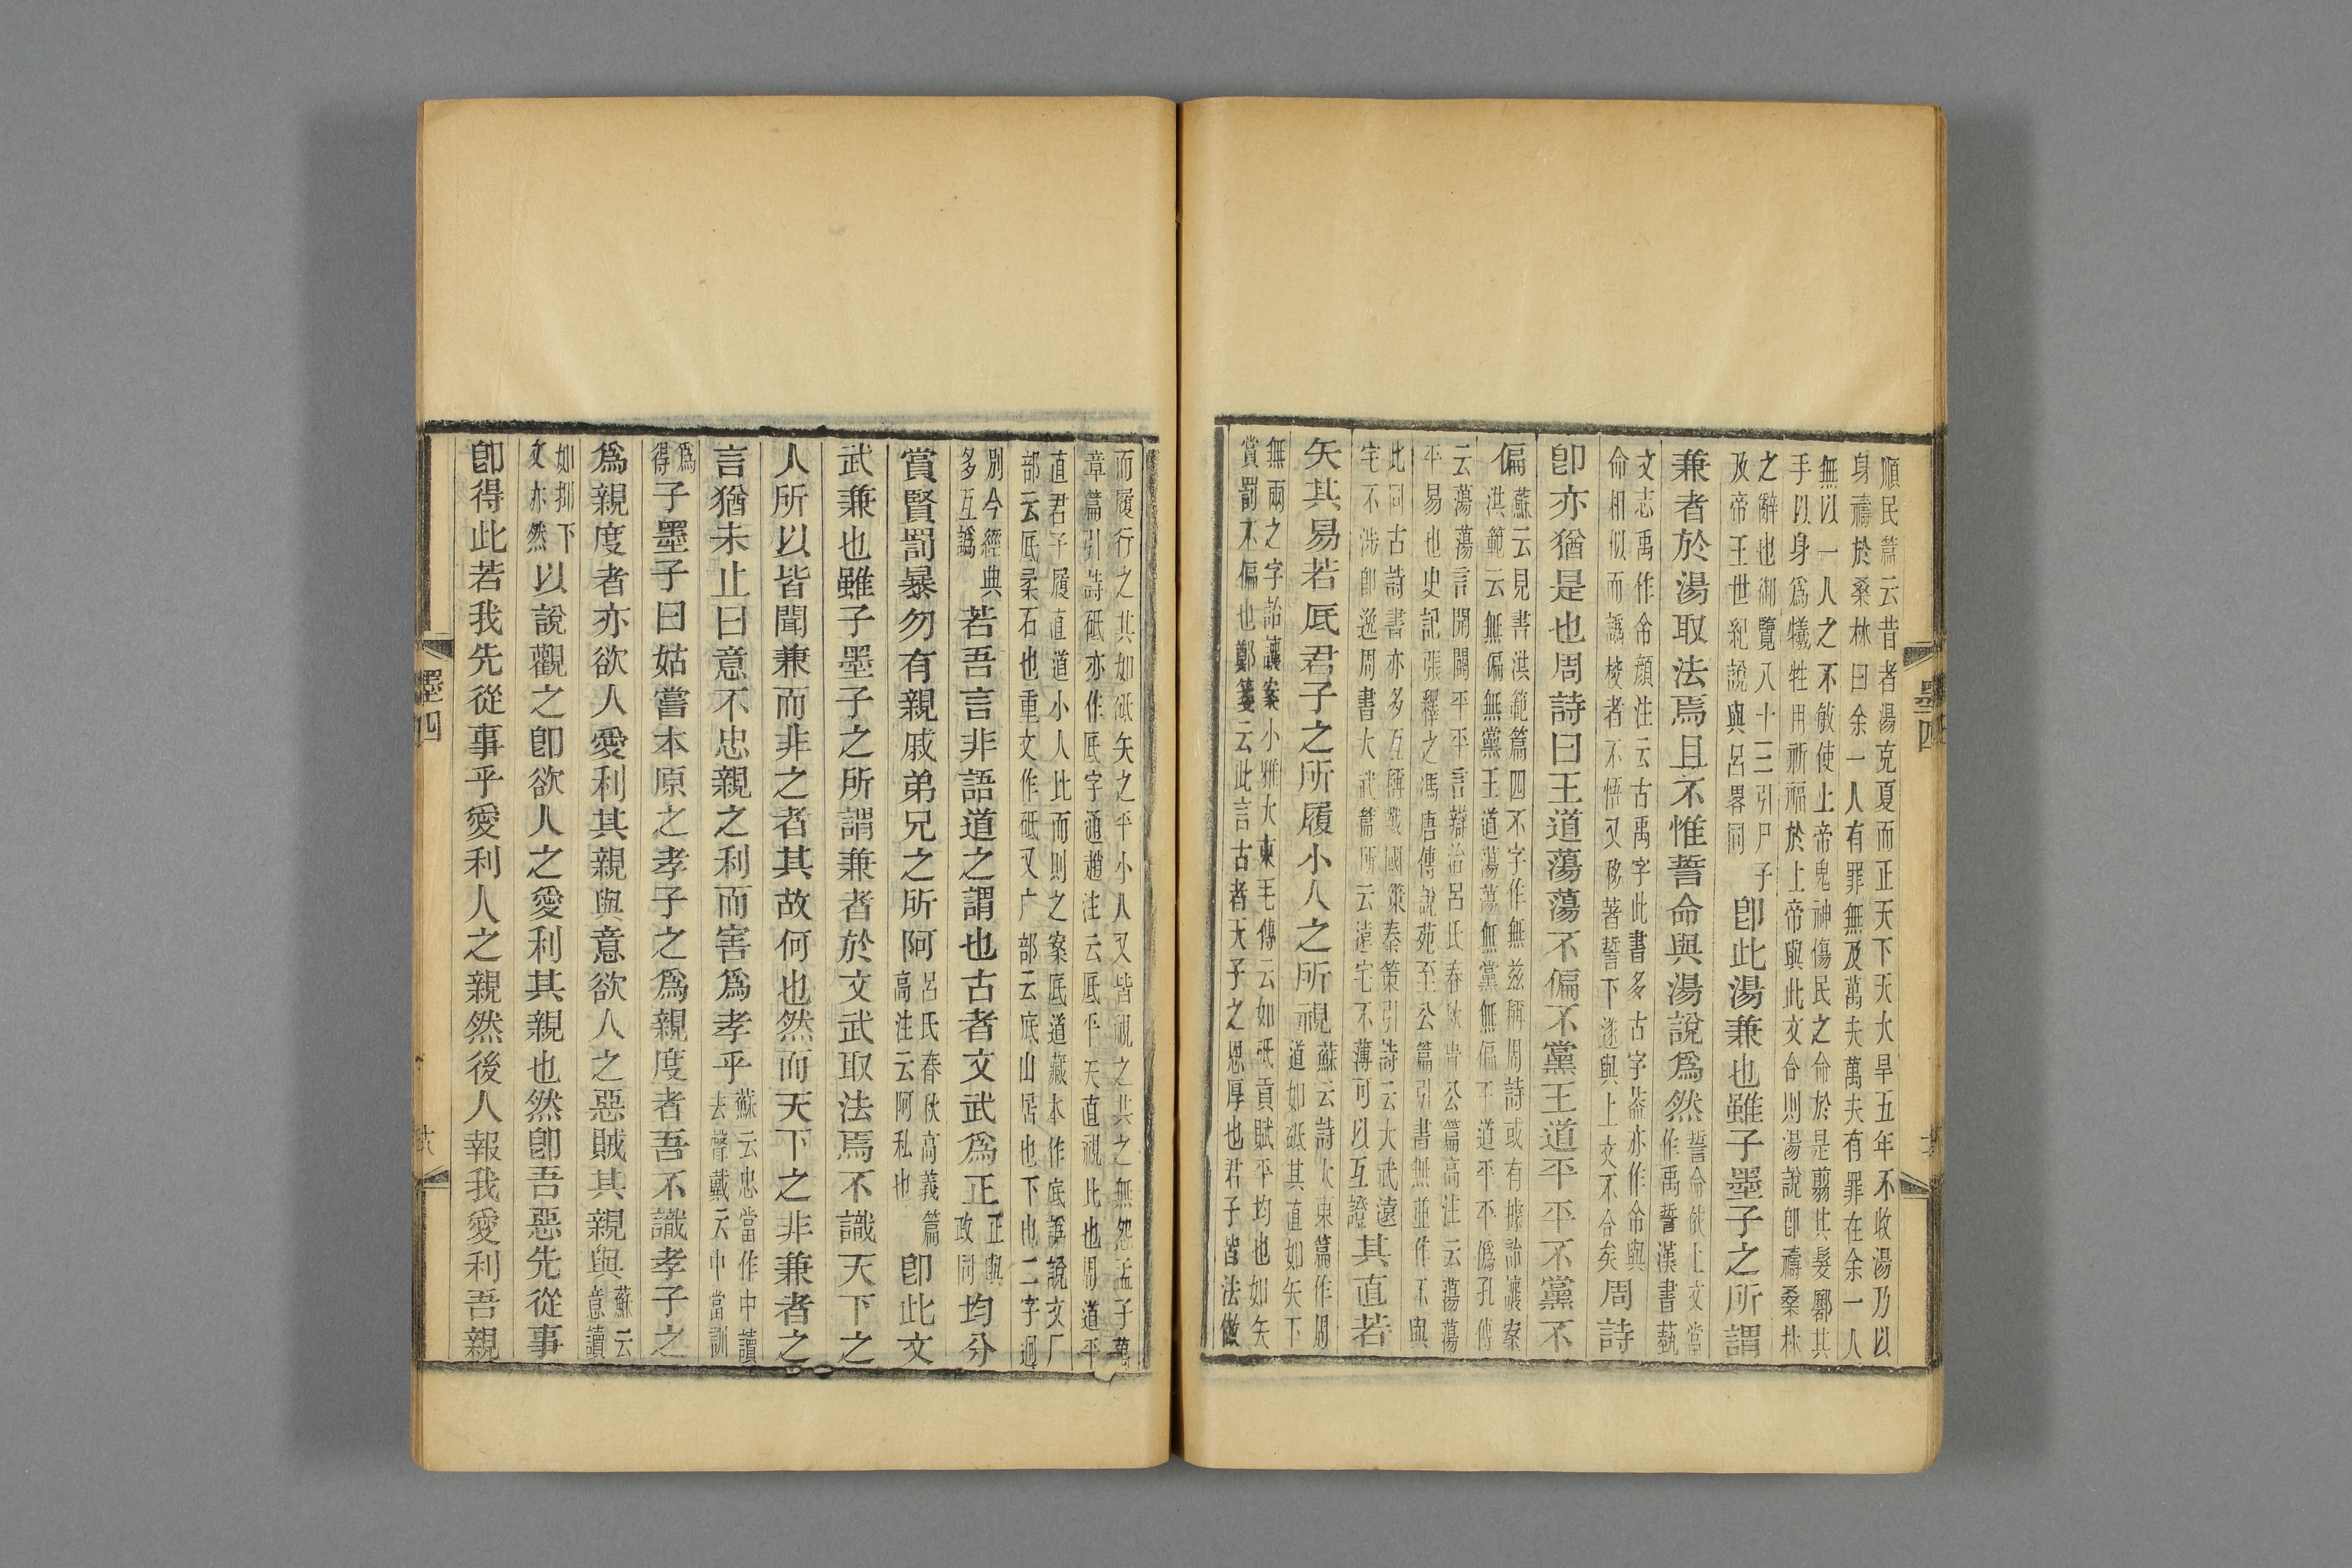 順民篇云昔者湯克夏而正天下天大旱五年不收湯乃以
身禱於桑林曰余一人有罪無及萬夫萬夫有罪在余一人
無以一人之不敏使上帝鬼神傷民之命於是翦其髮其
手以身爲犧牲用祈福於上帝與此文合則湯說卽禱桑林
之辭也御覽八十三引尸子
及帝王世紀說與呂畧同
卽此湯兼也雖子墨子之所謂
兼者於湯取法焉且不惟誓命與湯說爲然
誓命依上文當
作禹誓漢書藝
文志禹作命顏注云古禹字此書多古字葢亦作命與
命相似而譌校者不悟又移著誓下遂與上文不合矣
周詩
卽亦猶是也周詩曰王道蕩蕩不偏不黨王道平平不黨不
偏
蘇云見書洪範篇四不字作無茲稱周詩或有據詒讓案
洪範云無偏無黨王道蕩蕩無黨無偏王道平平僞孔傳
云蕩蕩言開闢平平言辯治呂氏春秋貴公篇高注云蕩蕩
平易也史記張釋之馮唐傳說苑至公篇引書無並作不與
此同古詩書亦多互稱戰國策秦策引詩云大武遠
宅不涉卽逸周書大武篇所云遠宅不薄可以互證
其直若
矢其易若厎君子之所履小人之所視
蘇云詩大東篇作周
道如砥其直如矢下
無兩之字詒讓案小雅大東毛傳云如砥貢賦平均也如矢
賞罰不偏也鄭箋云此言古者天子之恩厚也君子皆法傚
墨四
而履行之其如砥矢之平小人又皆視之共之無怨孟子萬
章篇引詩砥亦作厎字通趙注云厎平天直視比也周道平
直君子履直道小人比而則之案厎道藏本作底譌說文厂
部云厎柔石也重文作砥又广部云底山居也下也二字迥
別今經典
多互譌
若吾言非語道之謂也古者文武爲正
正與
政同
均分
賞賢罰暴勿有親戚弟兄之所阿
呂氏春秋高義篇
高注云阿私也
卽此文
武兼也雖子墨子之所謂兼者於文武取法焉不識天下之
人所以皆聞兼而非之者其故何也然而天下之非兼者之
言猶未止曰意不忠親之利而害爲孝乎
蘇云忠當作中讀
去聲戴云中當訓
爲
得
子墨子曰姑嘗本原之孝子之爲親度者吾不識孝子之
爲親度者亦欲人愛利其親與意欲人之惡賊其親與
蘇云
意讀
如抑下
文亦然
以說觀之卽欲人之愛利其親也然卽吾惡先從事
卽得此若我先從事乎愛利人之親然後人報我愛利吾親
墨四